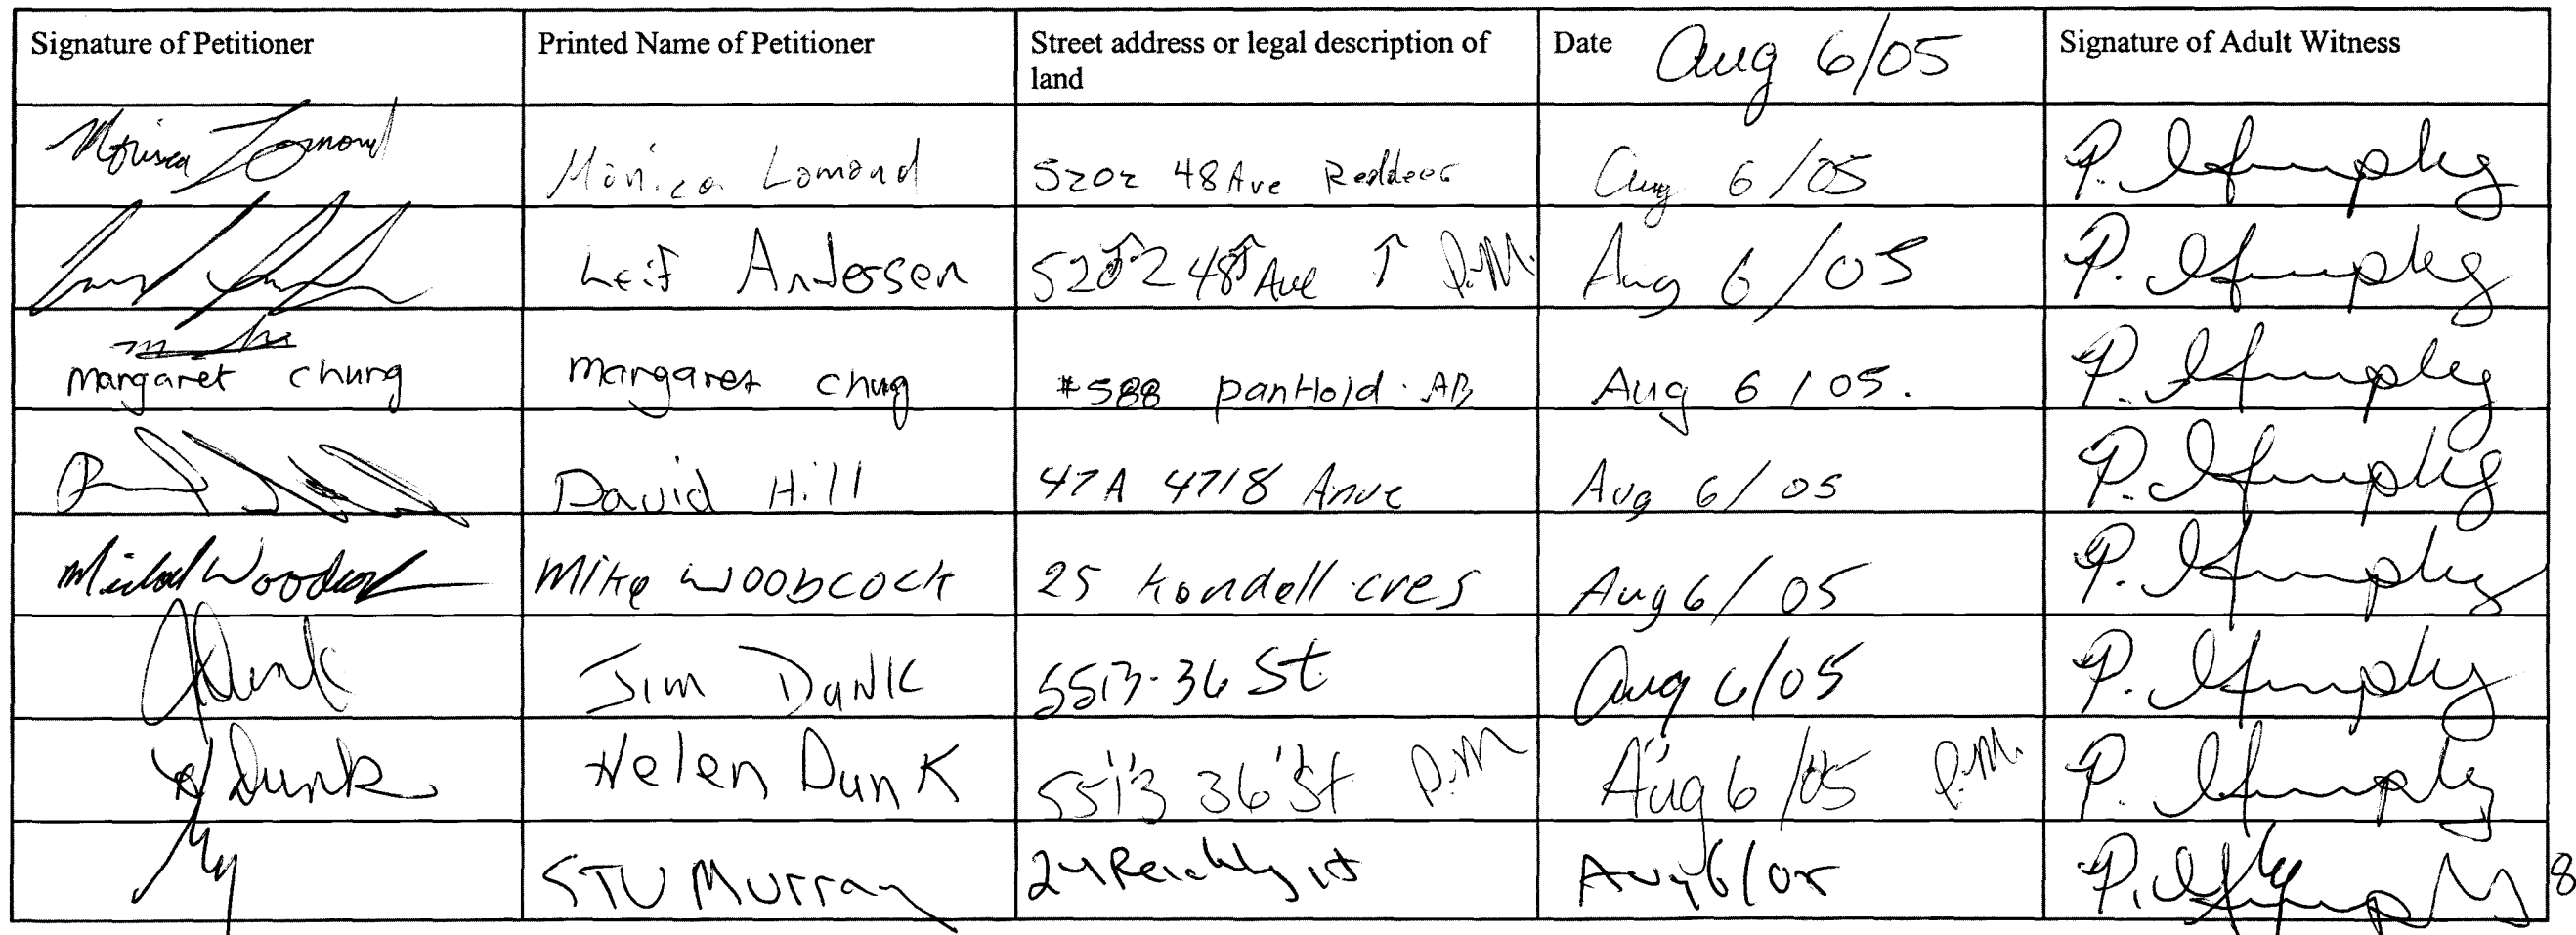 Signature of Petitioner Printed Name of Petitioner Street address or legal description of Date Aug 6/05 Signature of Adult Witness
land
Monica Lomond Monica Lomond 5202 48 Ave Reddeer Aug 6/05 P.
Leif Andersen 5202 48 Ave P.M. Aug 6/05 P.
margaret chung margaret chug #588 panHold AB Aug 6/05. P.
David Hill 47A 4718 Anve Aug 6/05 P.
Michael Woodcock Mike WOODCOCK 25 Kendell cres Aug 6/05 P.
JDunk Jim Dunk 5513-36 St Aug 6/05 P.
H Dunk Helen Dunk 5513 36 St P.M Aug 6/05 P.M. P.
STU Murray 24 Aug 6/05 P. 8